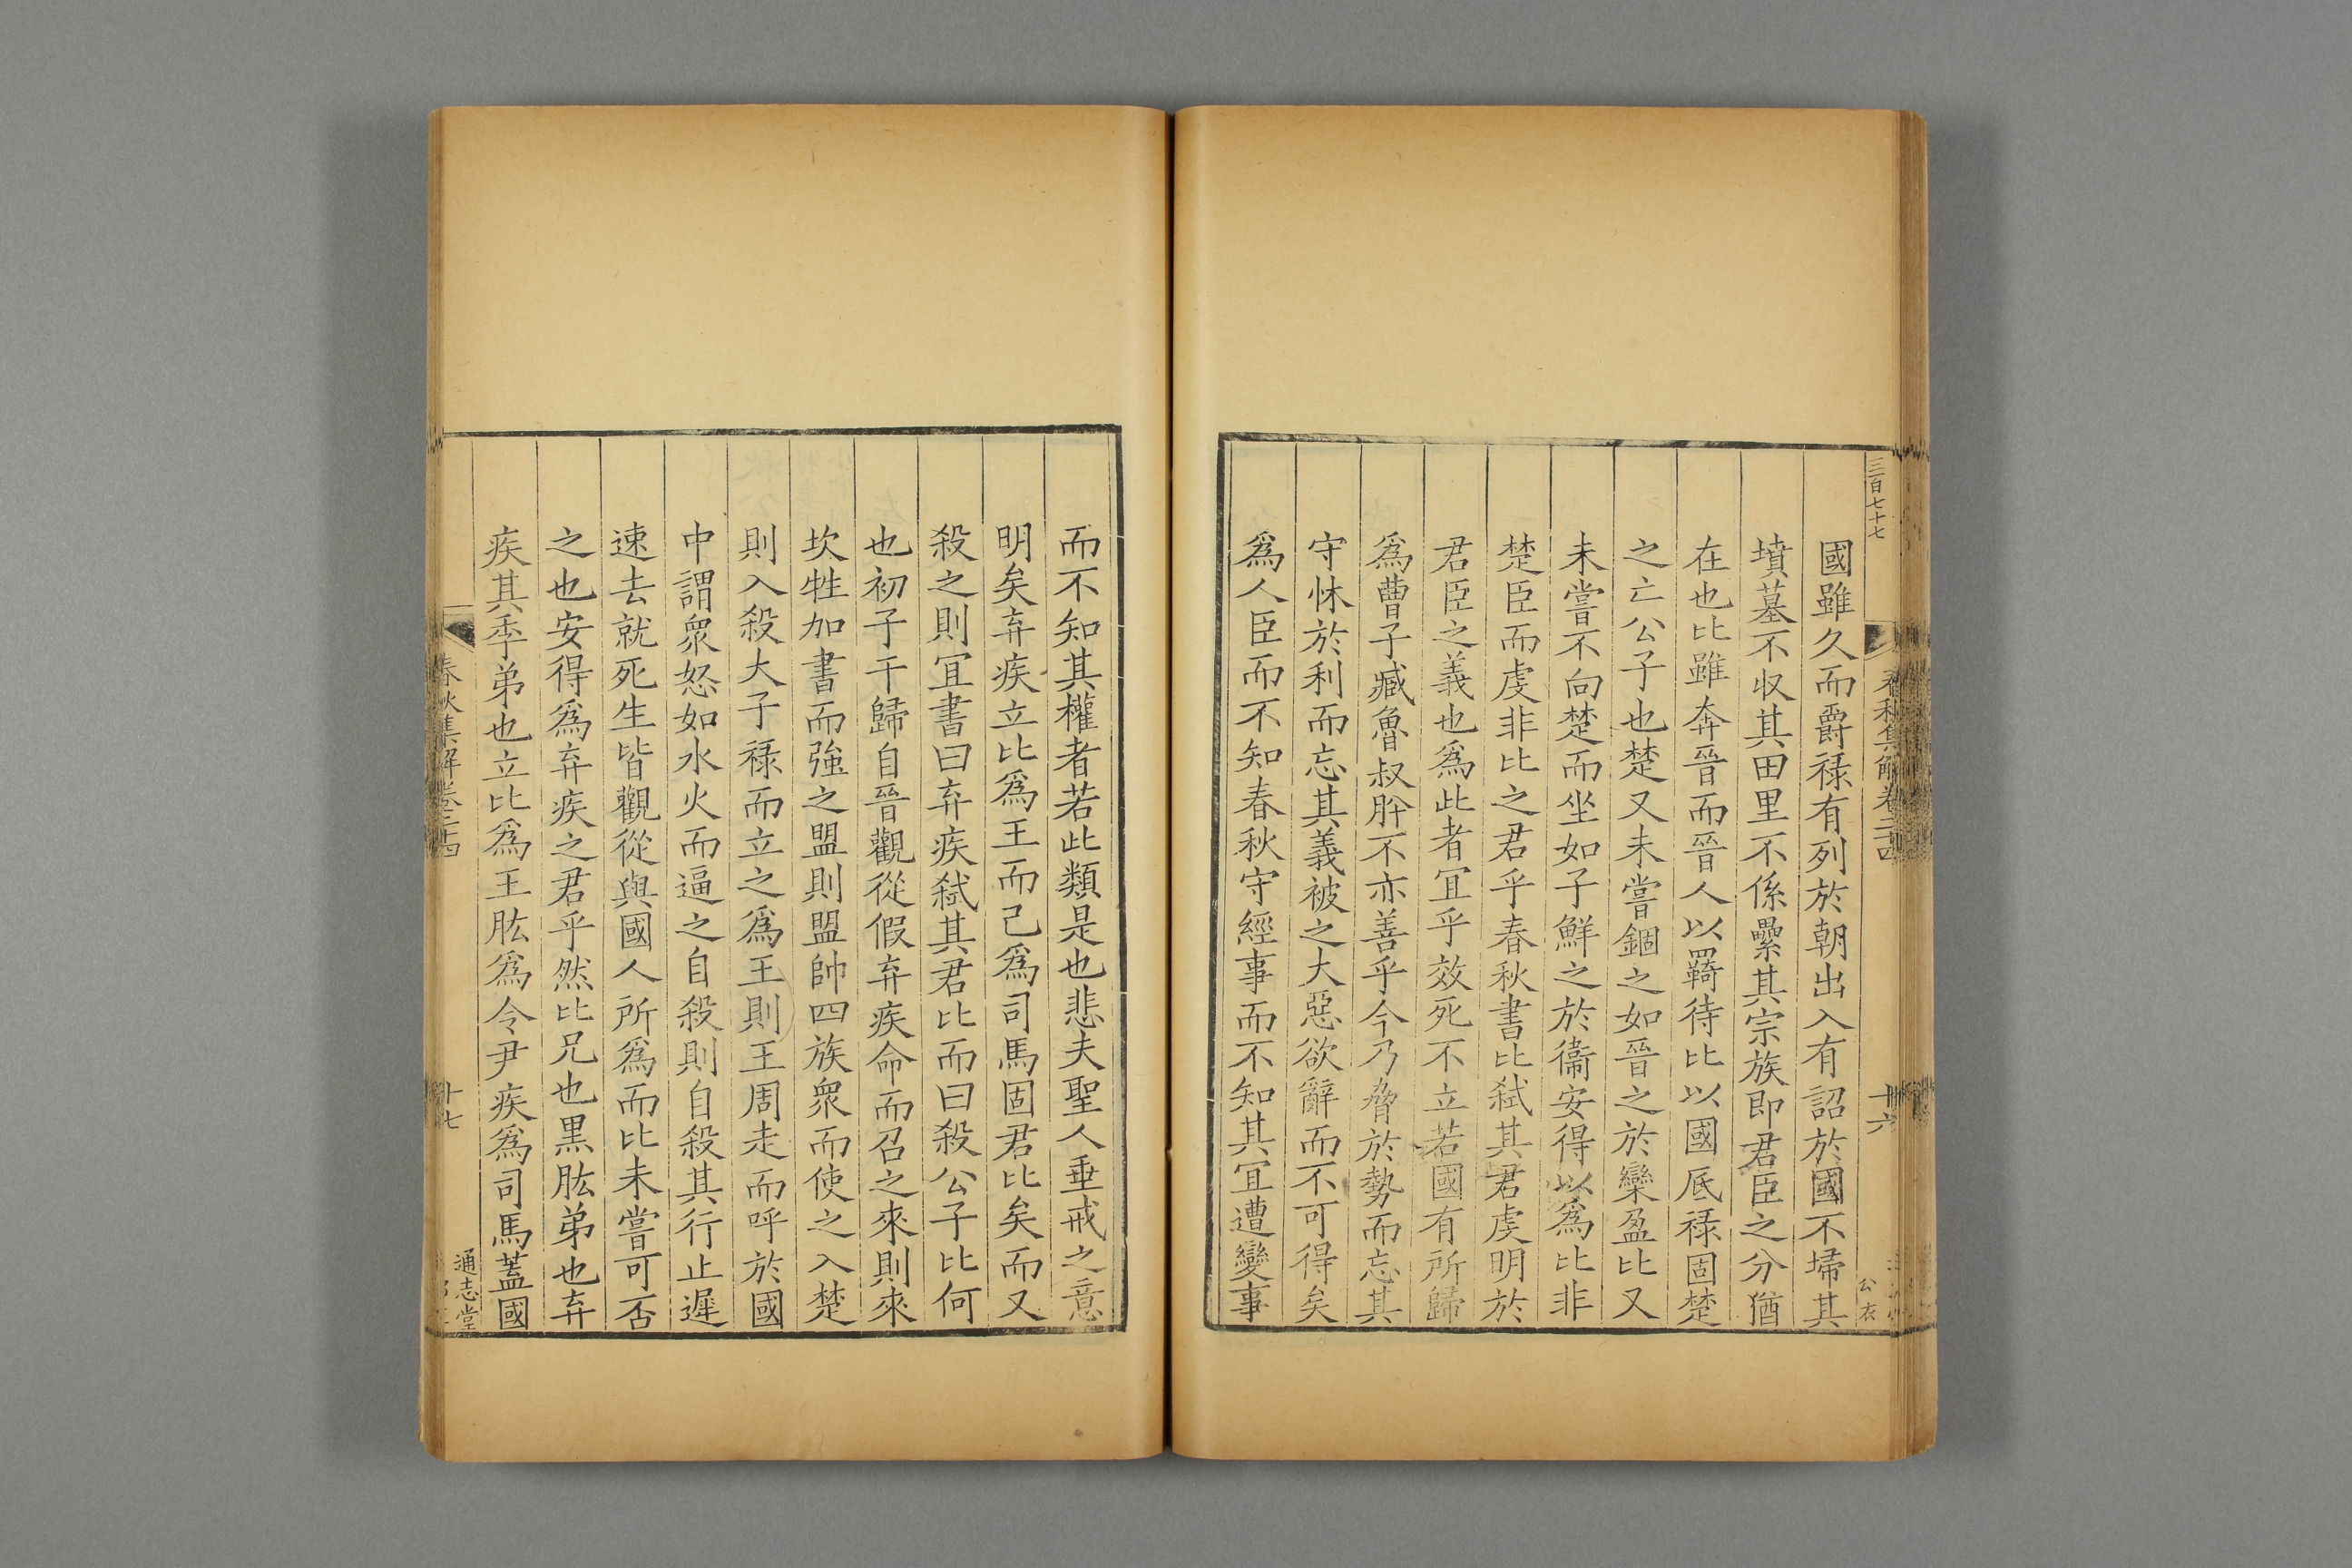 三百七十七
春秋集解卷二十四
十六
公衣
國雖久而爵祿有列於朝出入有詔於國不埽其
墳墓不收其田里不係纍其宗族即君臣之分猶
在也比雖奔晉而晉人以羈待比以國底祿固楚
之亡公子也楚又未嘗錮之如晉之於欒盈比又
未嘗不向楚而坐如子鮮之於衞安得以爲比非
楚臣而虔非比之君乎春秋書比弑其君虔明於
君臣之義也爲此者冝乎效死不立若國有所歸
爲曹子臧魯叔肸不亦善乎今乃脅於勢而忘其
守怵於利而忘其義被之大惡欲辭而不可得矣
爲人臣而不知春秋守經事而不知其冝遭變事
而不知其權者若此類是也悲夫聖人垂戒之意
明矣弃疾立比爲王而己爲司馬固君比矣而又
殺之則冝書曰弃疾弑其君比而曰殺公子比何
也初子干歸自晉觀從假弃疾命而召之來則來
坎牲加書而強之盟則盟帥四族衆而使之入楚
則入殺大子禄而立之爲王則王周走而呼於國
中謂衆怒如水火而逼之自殺則自殺其行止遲
速去就死生皆觀從與國人所爲而比未嘗可否
之也安得爲弃疾之君乎然比兄也黒肱弟也弃
疾其季弟也立比爲王肱爲令尹疾爲司馬蓋國
春秋集解卷二十四
十七
通志堂